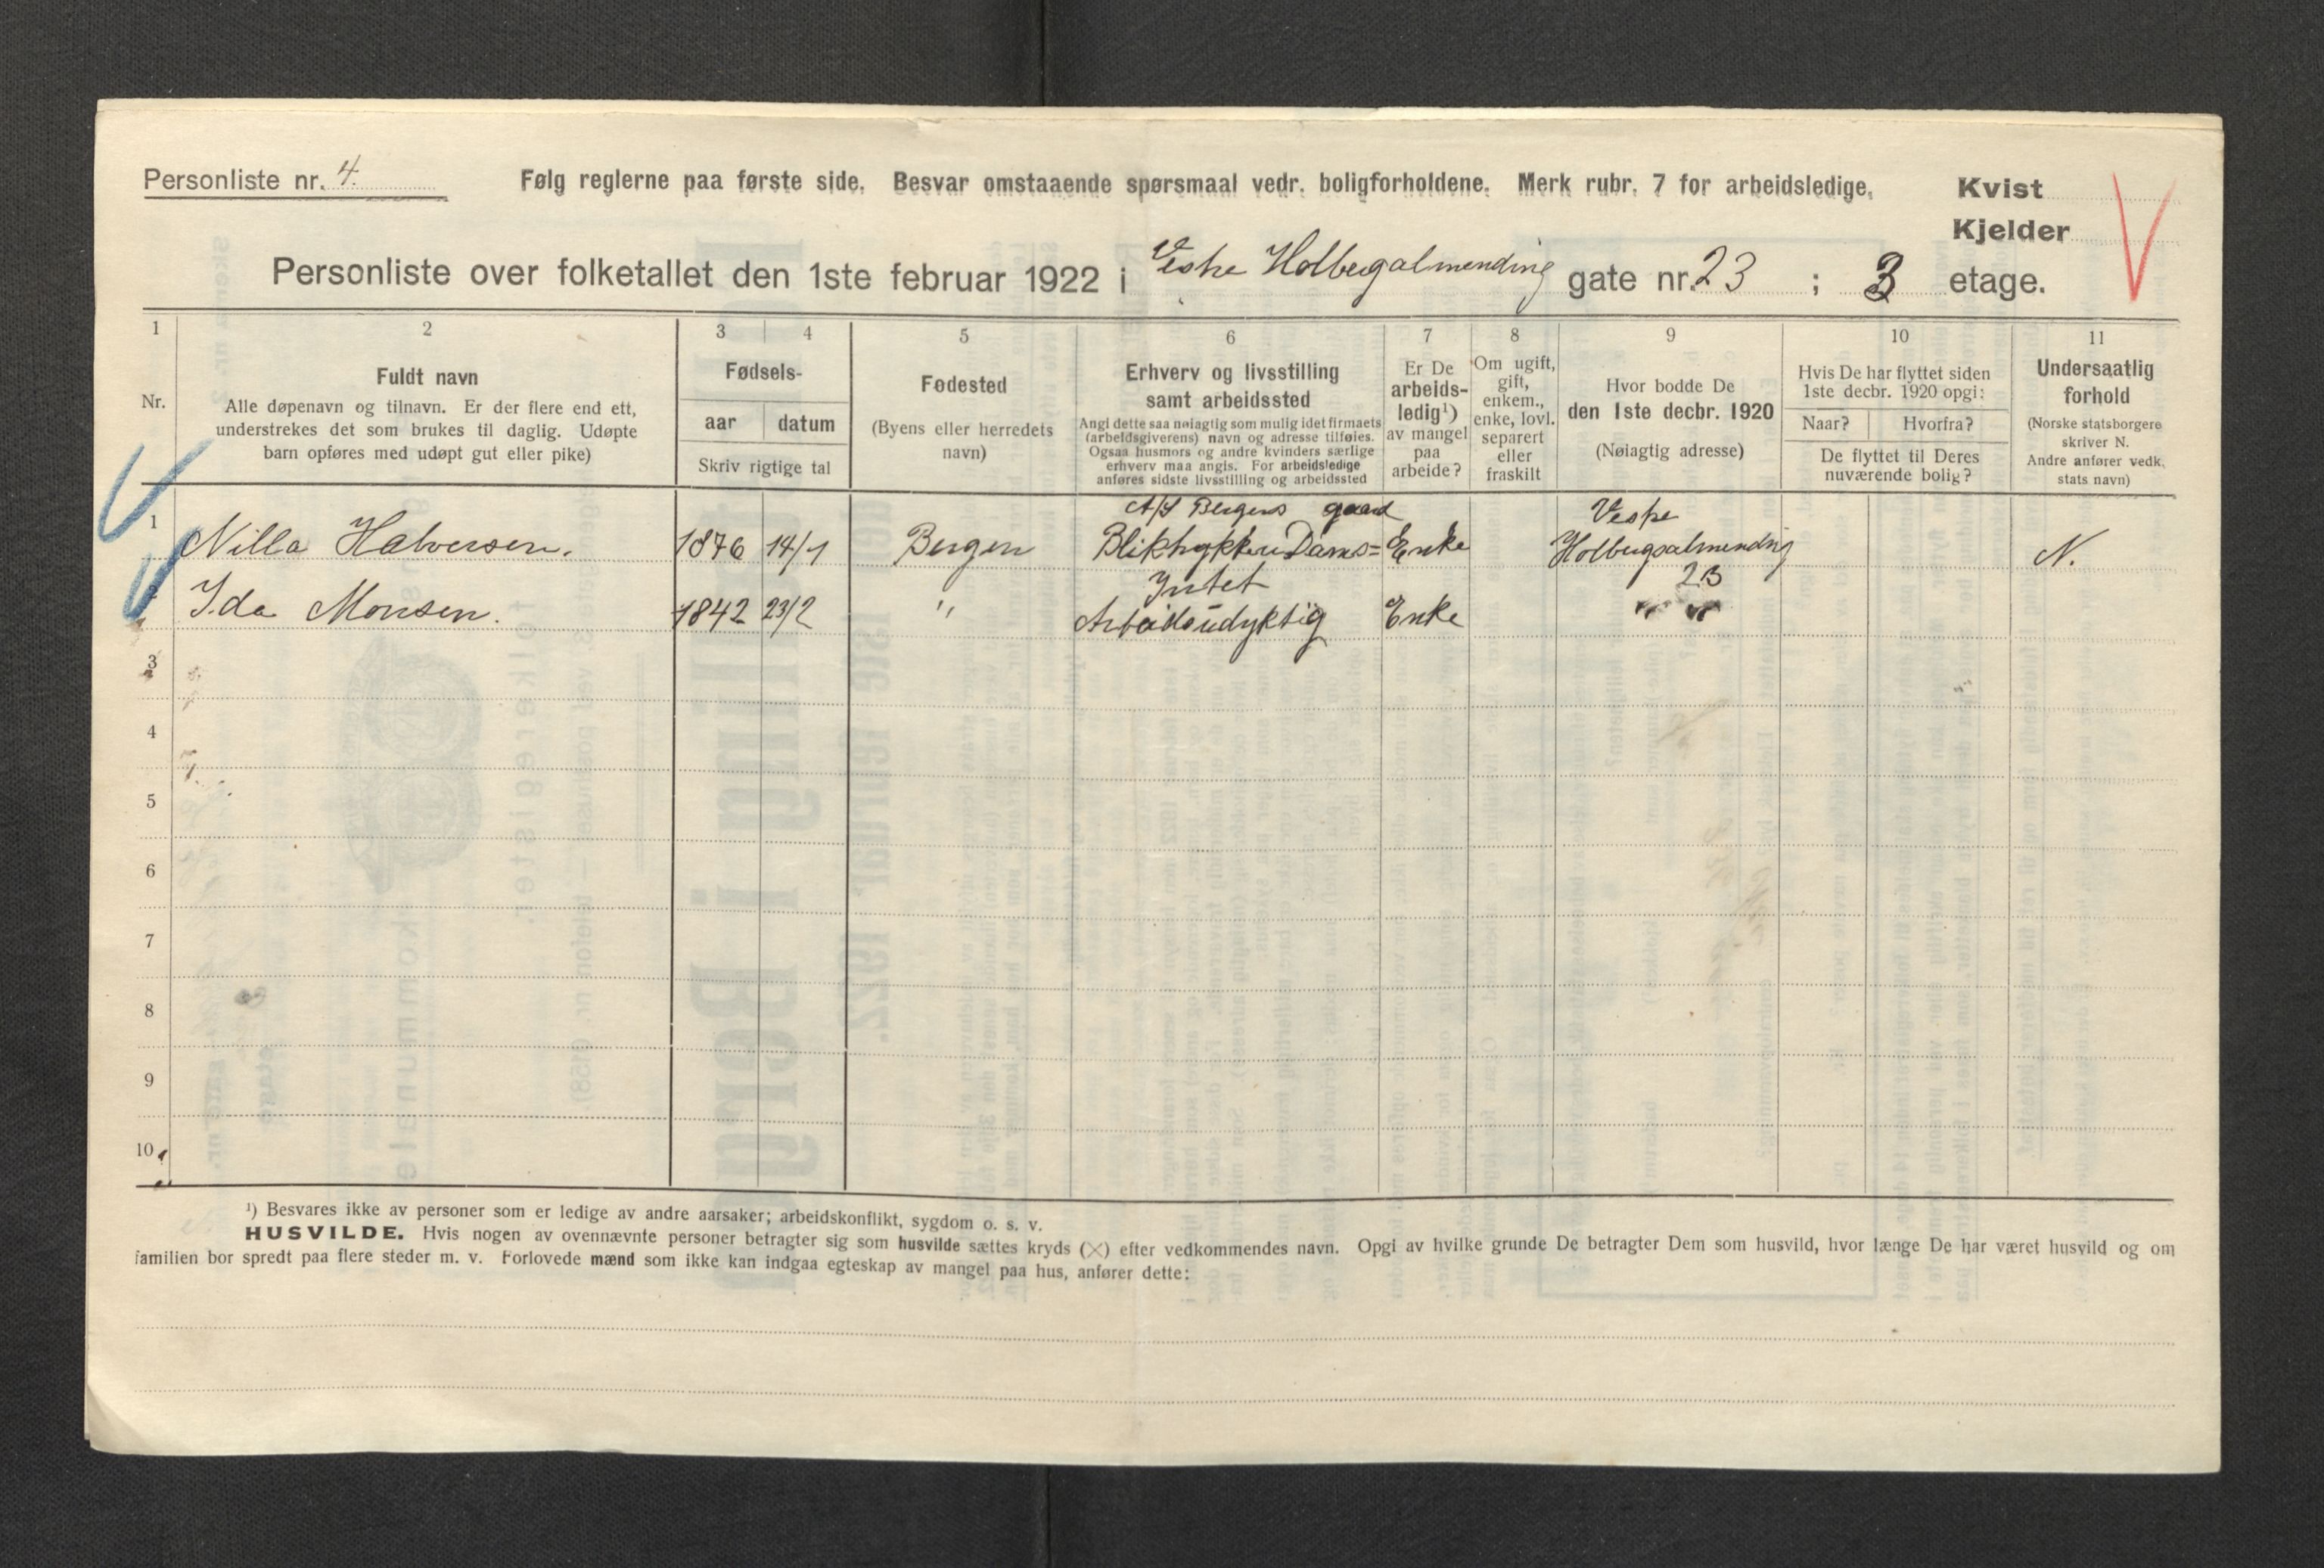 Personliste nr. 4.
Følg reglerne paa første side. Besvar omstaaende spørsmaal vedr. boligforholdene. Merk rubr. 7 for arbeidsledige.
Kvist
Kjelder
Personliste over folketallet den 1ste februar 1922 i Vestre Holbergalmending gate nr. 23 ; 3 etage.
1 2 3 4 5 6 7 8 9 10 11
Nr.
Fuldt navn
Alle døpenavn og tilnavn. Er der flere end ett,
understrekes det som brukes til daglig. Udøpte
barn opføres med udøpt gut eller pike)
Fødsels-
aar datum
Skriv rigtige tal
Fødested
(Byens eller herredets
navn)
Erhverv og livsstilling
samt arbeidssted
Angi dette saa nøiagtig som mulig idet firmaets
(arbeidsgiverens) navn og adresse tilføies.
Ogsaa husmors og andre kvinders særlige
erhverv maa angis. For arbeidsledige
anføres sidste livsstilling og arbeidssted
Er De
arbeids-
ledig¹)
av mangel
paa
arbeide?
Om ugift,
gift,
enkem.,
enke, lovl.
separert
eller
fraskilt
Hvor bodde De
den 1ste decbr. 1920
(Nøiagtig adresse)
Hvis De har flyttet siden
1ste decbr. 1920 opgi:
Naar? Hvorfra?
De flyttet til Deres
nuværende bolig?
Undersaatlig
forhold
(Norske statsborgere
skriver N.
Andre anfører vedk.
stats navn)
A/S Bergens gaard Vestre
1 Nilla Halvorsen. 1876 14/1 Bergen Bliktrykkeri Dams= Enke Holbergsalmending N.
Intet 23
Ida Monsen. 1842 23/2 " Arbeidsudyktig Enke " "
3
4
5
6
7
8
9
10
¹) Besvares ikke av personer som er ledige av andre aarsaker; arbeidskonflikt, sygdom o. s. v.
HUSVILDE. Hvis nogen av ovennævnte personer betragter sig som husvilde sættes kryds (×) efter vedkommendes navn. Opgi av hvilke grunde De betragter Dem som husvild, hvor længe De har været husvild og om
familien bor spredt paa flere steder m. v. Forlovede mænd som ikke kan indgaa egteskap av mangel paa hus, anfører dette: